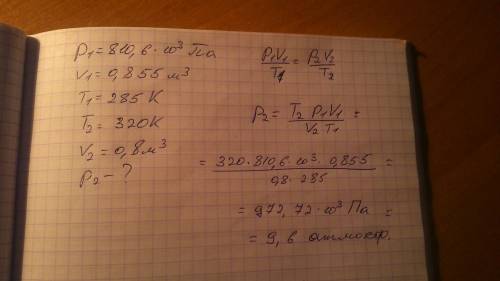 P₁=810,6·10³ Па
V₁=0,855 м³
T₁=285 K
T₂=320K
V₂=0,8м³
P₂-?
P₁V₁/T₁=P₂V₂/T₂
P₂=T₂P₁V₁/V₂T₁=
=320·810,6·10³·0,855/0,8·285=
=972,72·10³Па=
=9,6 атмосф.